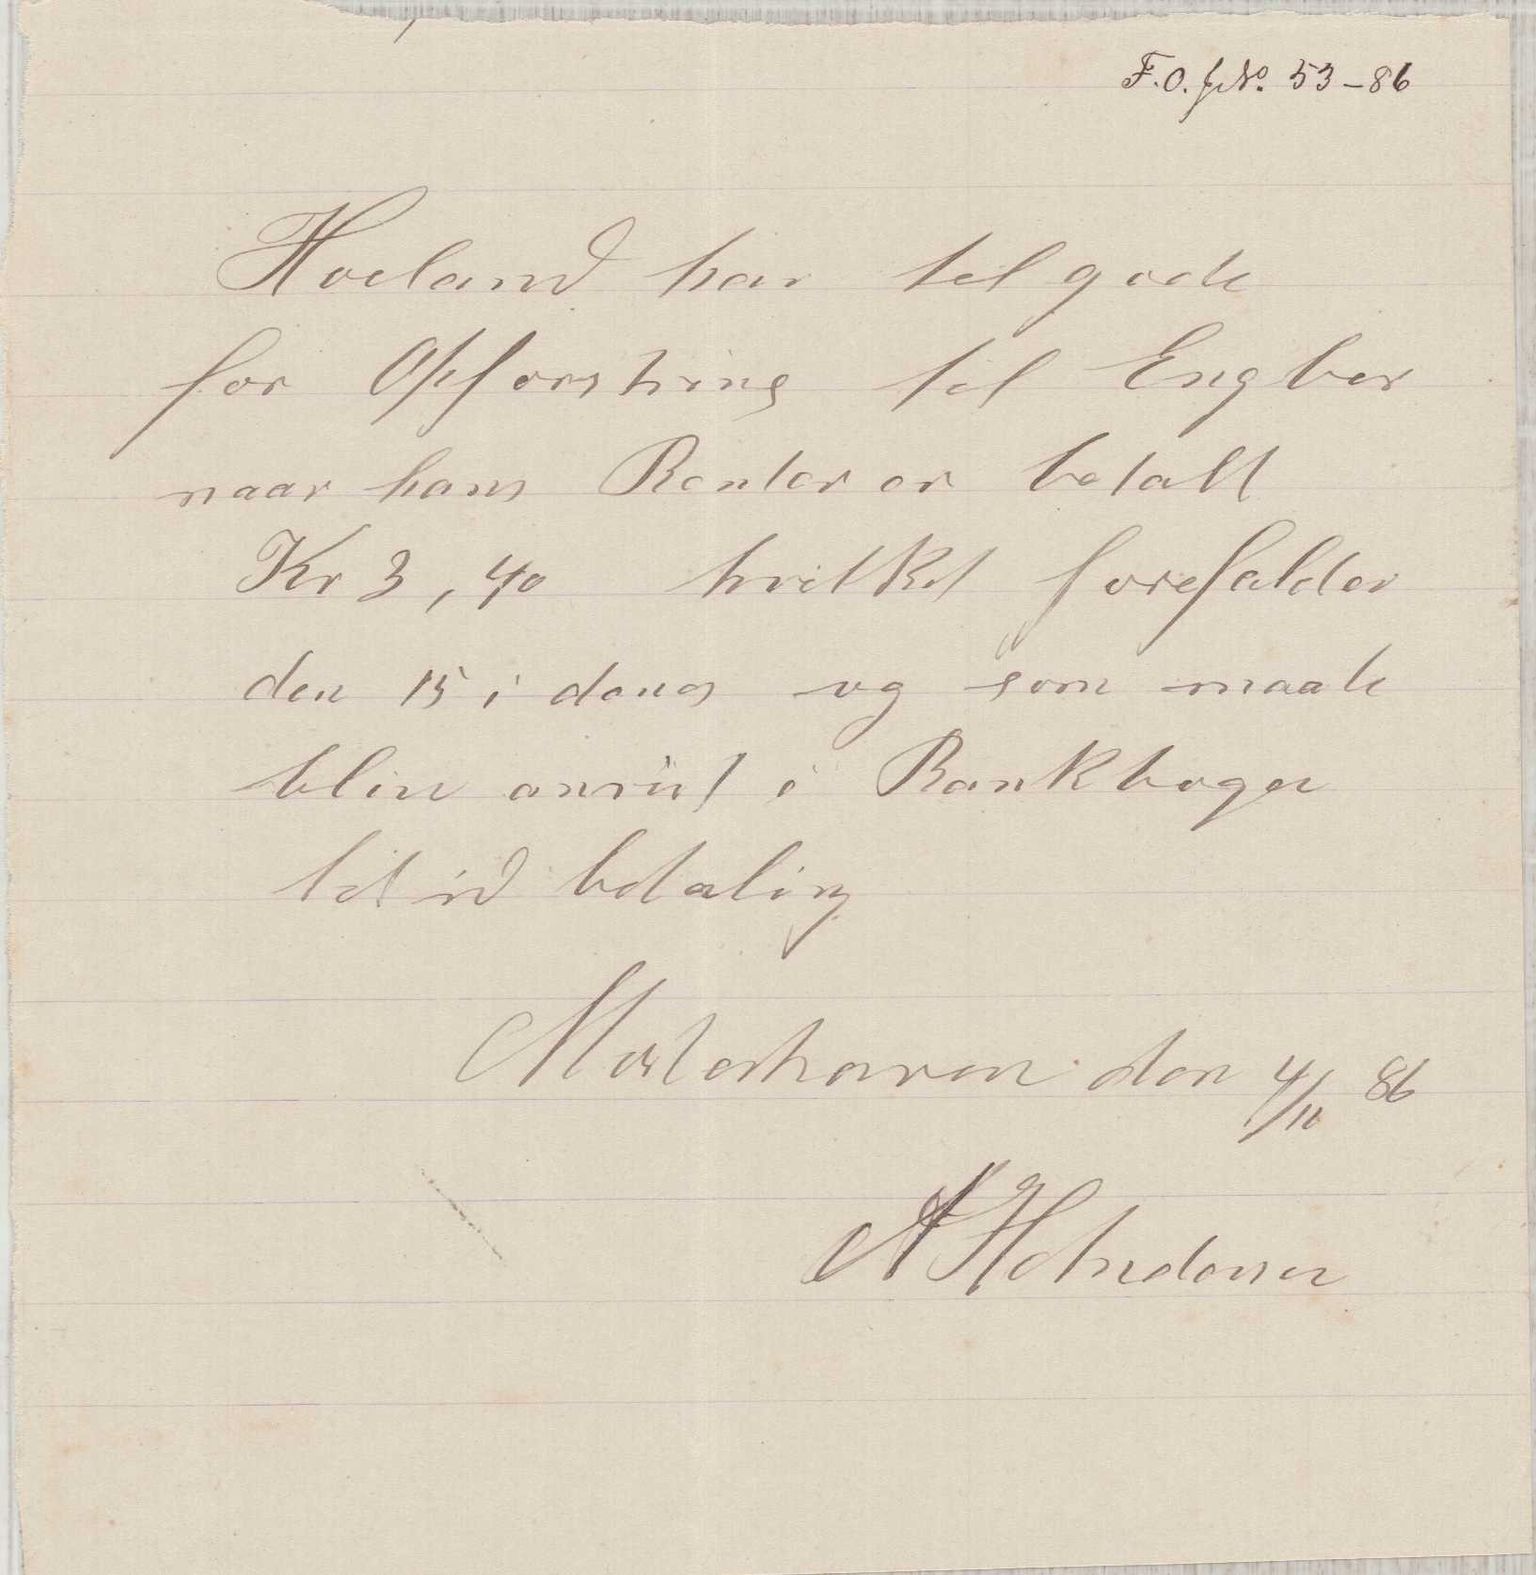 F.O. J.No. 53-86
Hoeland har tel gode
for Opforstring til Engber
naar hans Renter er betalt
Kr 3,40 hvilket forefalder
den 15 i dens og som maate
blive anvist i Bankbogen
til ud betaling
Mosterhavn den 4/10 86
A